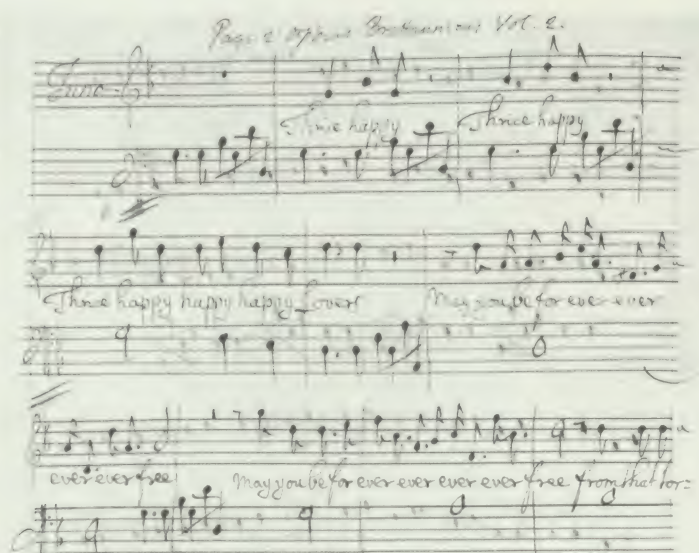 Page 2 Orpheus Britannicus Vol. 2.
Juno
Thrice happy Thrice happy
Thrice happy happy happy Lovers May you be for ever ever
ever ever free May you be for ever ever ever ever free from that tor=